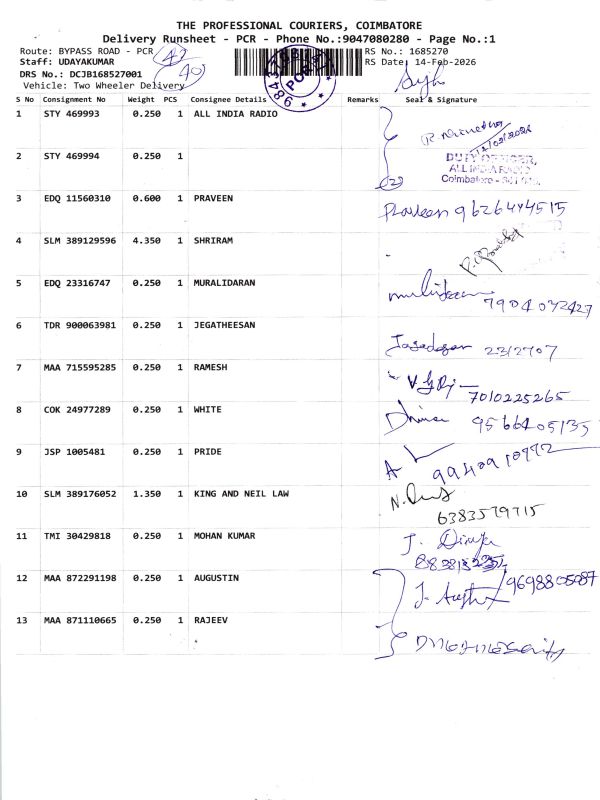 THE PROFESSIONAL COURIERS, COIMBATORE
Delivery Runsheet - PCR - Phone No.:9047080280 - Page No.:1
Route: BYPASS ROAD - PCR 42 RS No.: 1685270
Staff: UDAYAKUMAR RS Date: 14-Feb-2026
DRS No.: DCJB168527001 40
Vehicle: Two Wheeler Delivery
PCR
S No Consignment No Weight PCS Consignee Details Remarks Seal & Signature
1 STY 469993 0.250 1 ALL INDIA RADIO
2 STY 469994 0.250 1 DUTY OFFICER,
ALL INDIA RADIO
(2) Coimbatore -
3 EDQ 11560310 0.600 1 PRAVEEN Praveen 9626444515
4 SLM 389129596 4.350 1 SHRIRAM
5 EDQ 23316747 0.250 1 MURALIDARAN
7904032427
6 TDR 900063981 0.250 1 JEGATHEESAN 2312707
7 MAA 715595285 0.250 1 RAMESH
7010225265
8 COK 24977289 0.250 1 WHITE 9566405135
9 JSP 1005481 0.250 1 PRIDE A
10 SLM 389176052 1.350 1 KING AND NEIL LAW
6383579715
11 TMI 30429818 0.250 1 MOHAN KUMAR
12 MAA 872291198 0.250 1 AUGUSTIN
13 MAA 871110665 0.250 1 RAJEEV